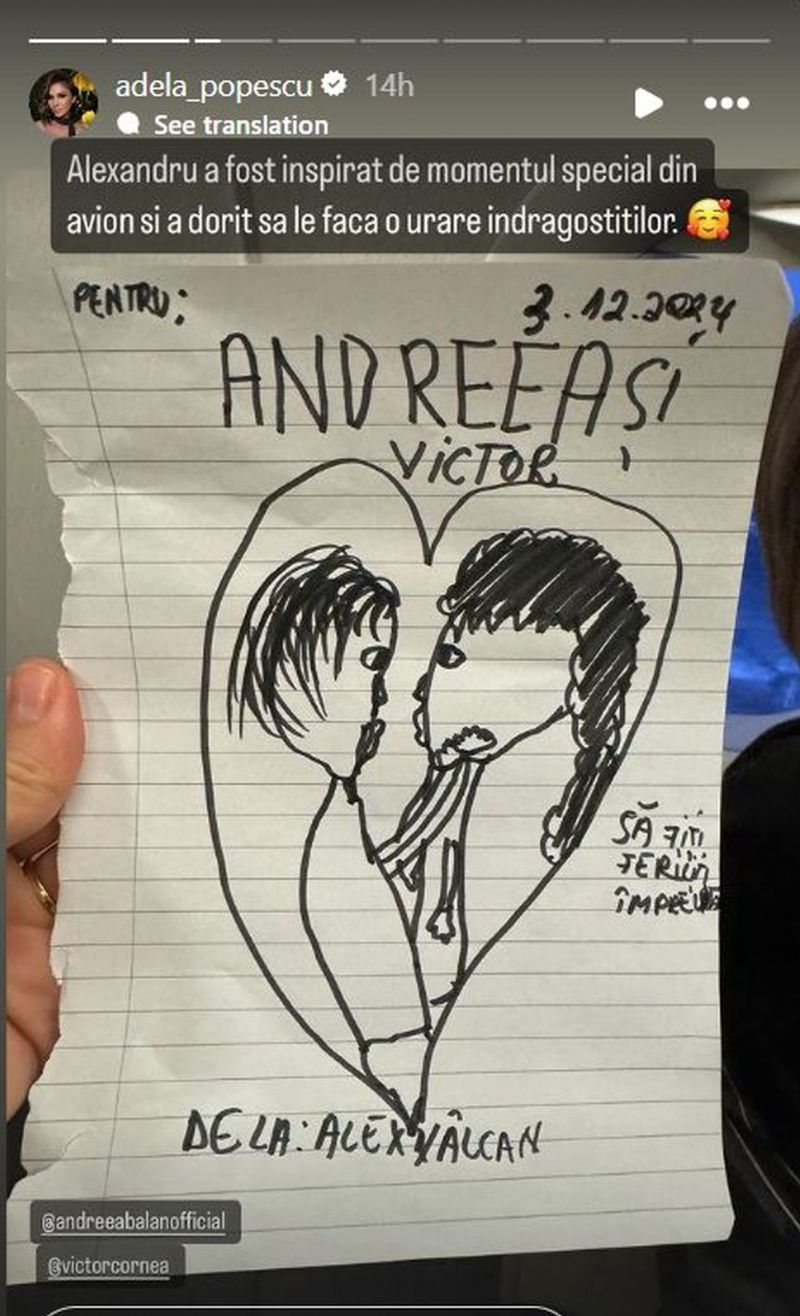 adela_popescu 14h
See translation
Alexandru a fost inspirat de momentul special din
avion si a dorit sa le faca o urare indragostitilor. 🥰
PENTRU:
3.12.2024
ANDREEA ȘI
VICTOR
SĂ FIȚI
FERICIȚI
ÎMPREUNĂ
DE LA: ALEX VÂLCAN
@andreeabalanofficial
@victorcornea